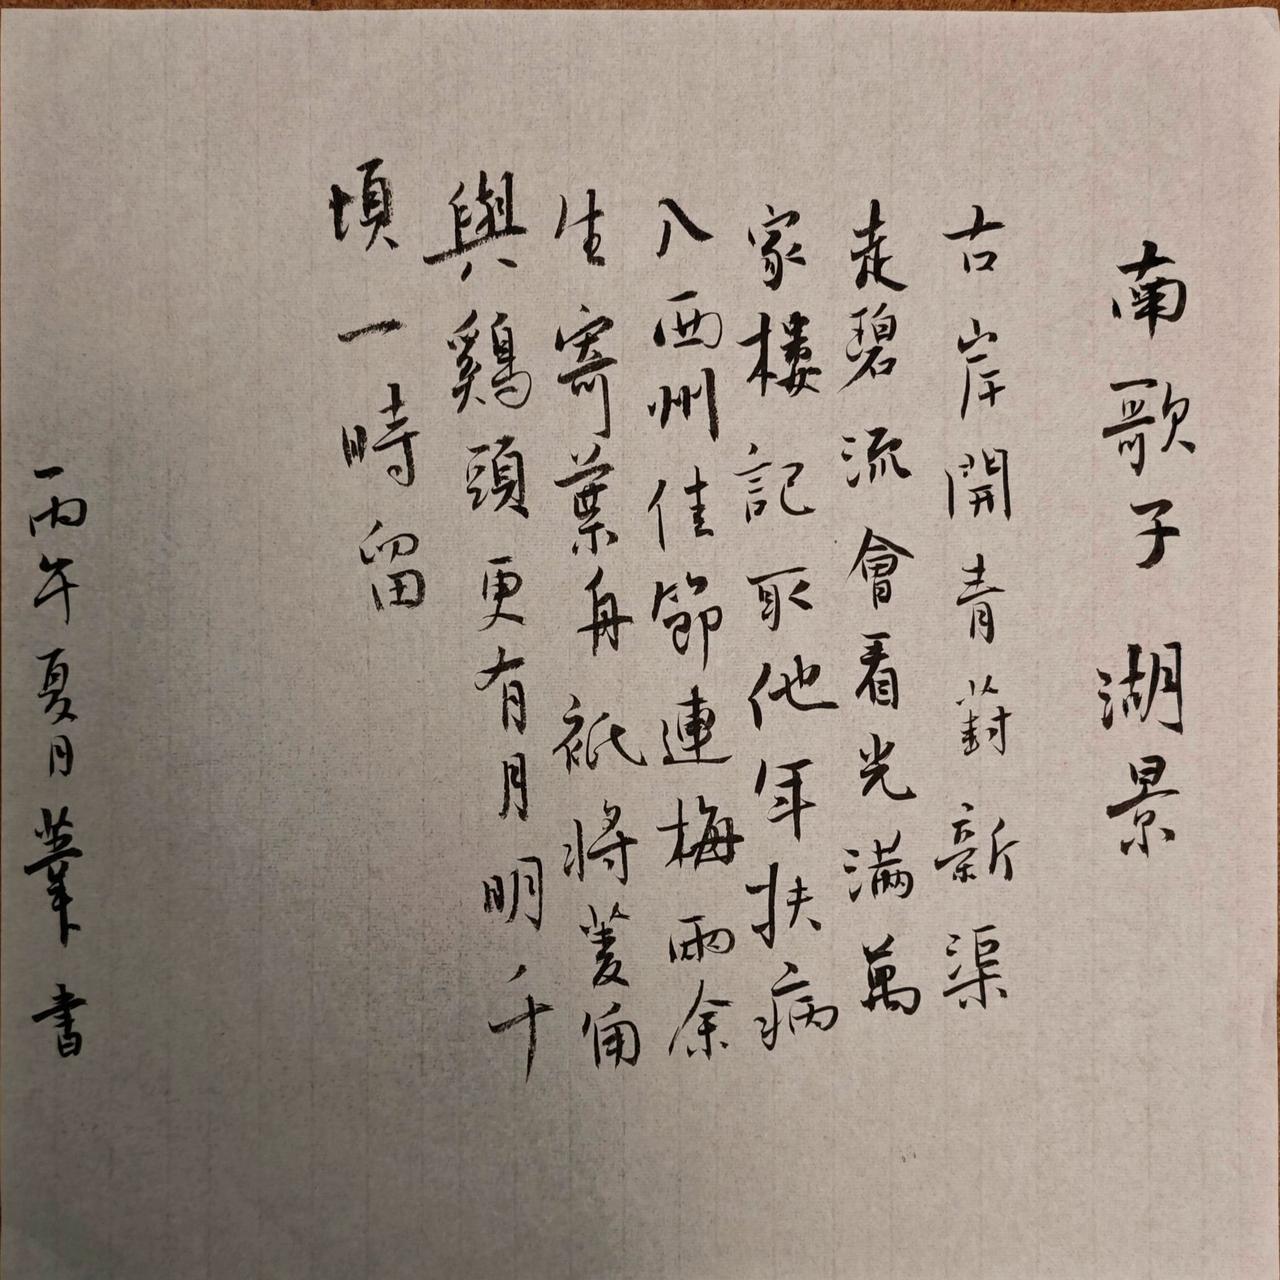 南歌子 湖景
古岸開青葑新渠
走碧流會看光滿萬
家樓記取他年扶病
入西州佳節連梅雨余
生寄葉舟祇將菱角
與鷄頭更有月明千
頃一時留
丙午夏月 書